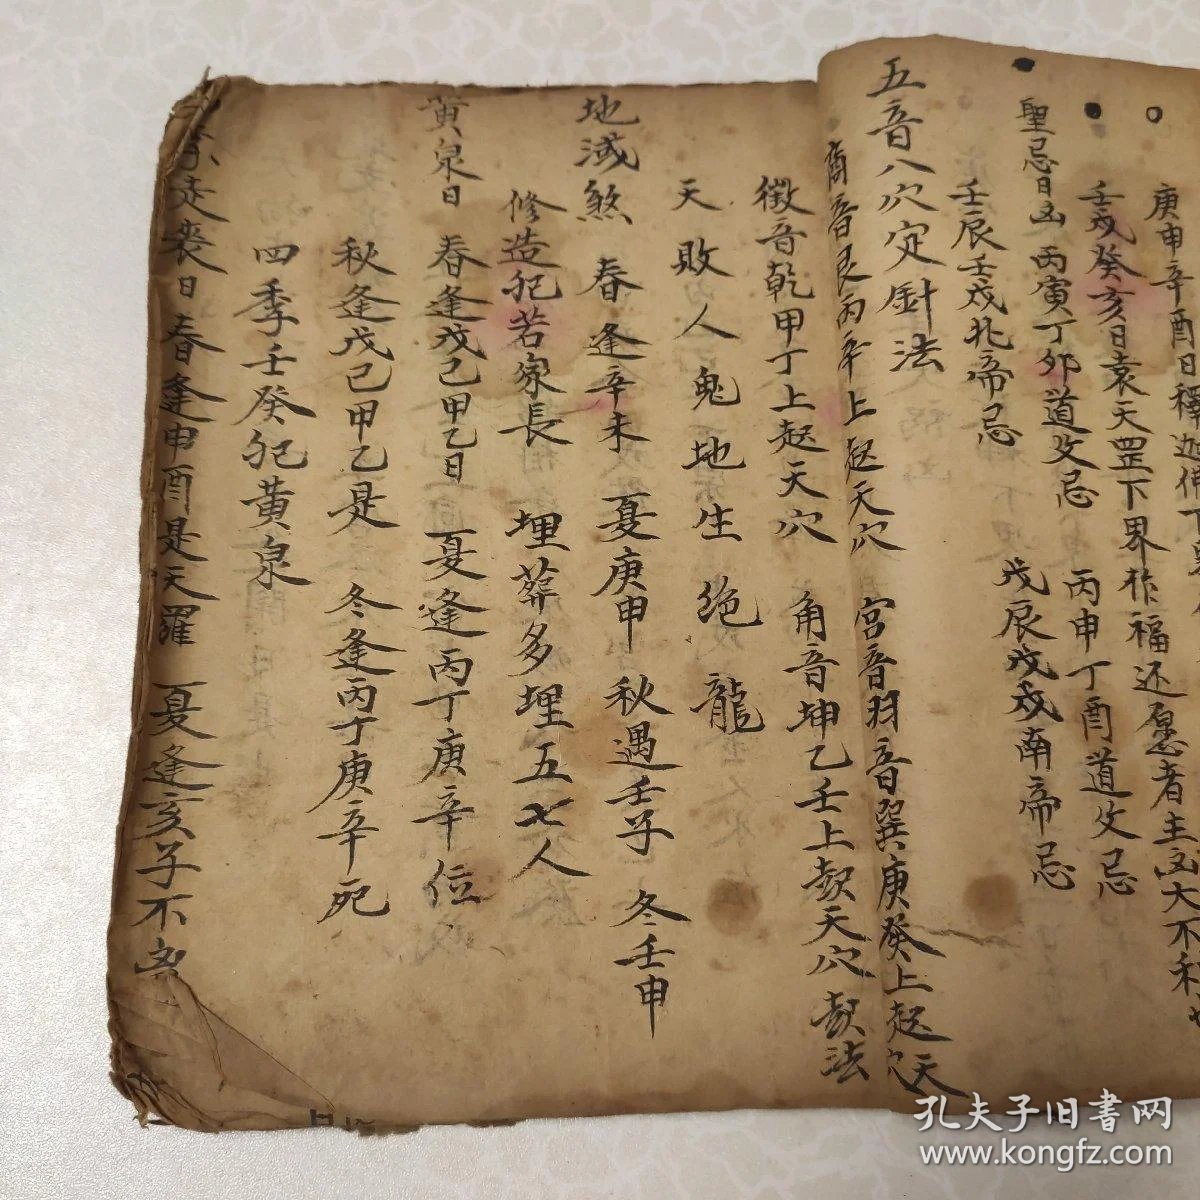 庚申辛酉日釋迦佛下
壬戌癸亥日袁天罡下界作福还愿者主凶大不利
丙寅丁卯道父忌 丙申丁酉道父忌
聖忌日凶
壬辰壬戌北帝忌 戊辰戊戌南帝忌
五音八穴定針法
商音艮丙辛上起天穴 宫音羽音巽庚癸上起天穴
徵音乾甲丁上起天穴 角音坤乙壬上起天穴 起法
天敗人鬼地生絶龍
地滅煞 春逢辛未 夏庚申 秋遇壬子 冬壬申
修造犯若家長 埋葬多埋五七人
黄泉日 春逢戊己甲乙日 夏逢丙丁庚辛位
秋逢戊己甲乙是 冬逢丙丁庚辛死
四季壬癸犯黄泉
走丧日春逢申酉是天羅 夏逢亥子不凶
孔夫子旧書网
www.kongfz.com